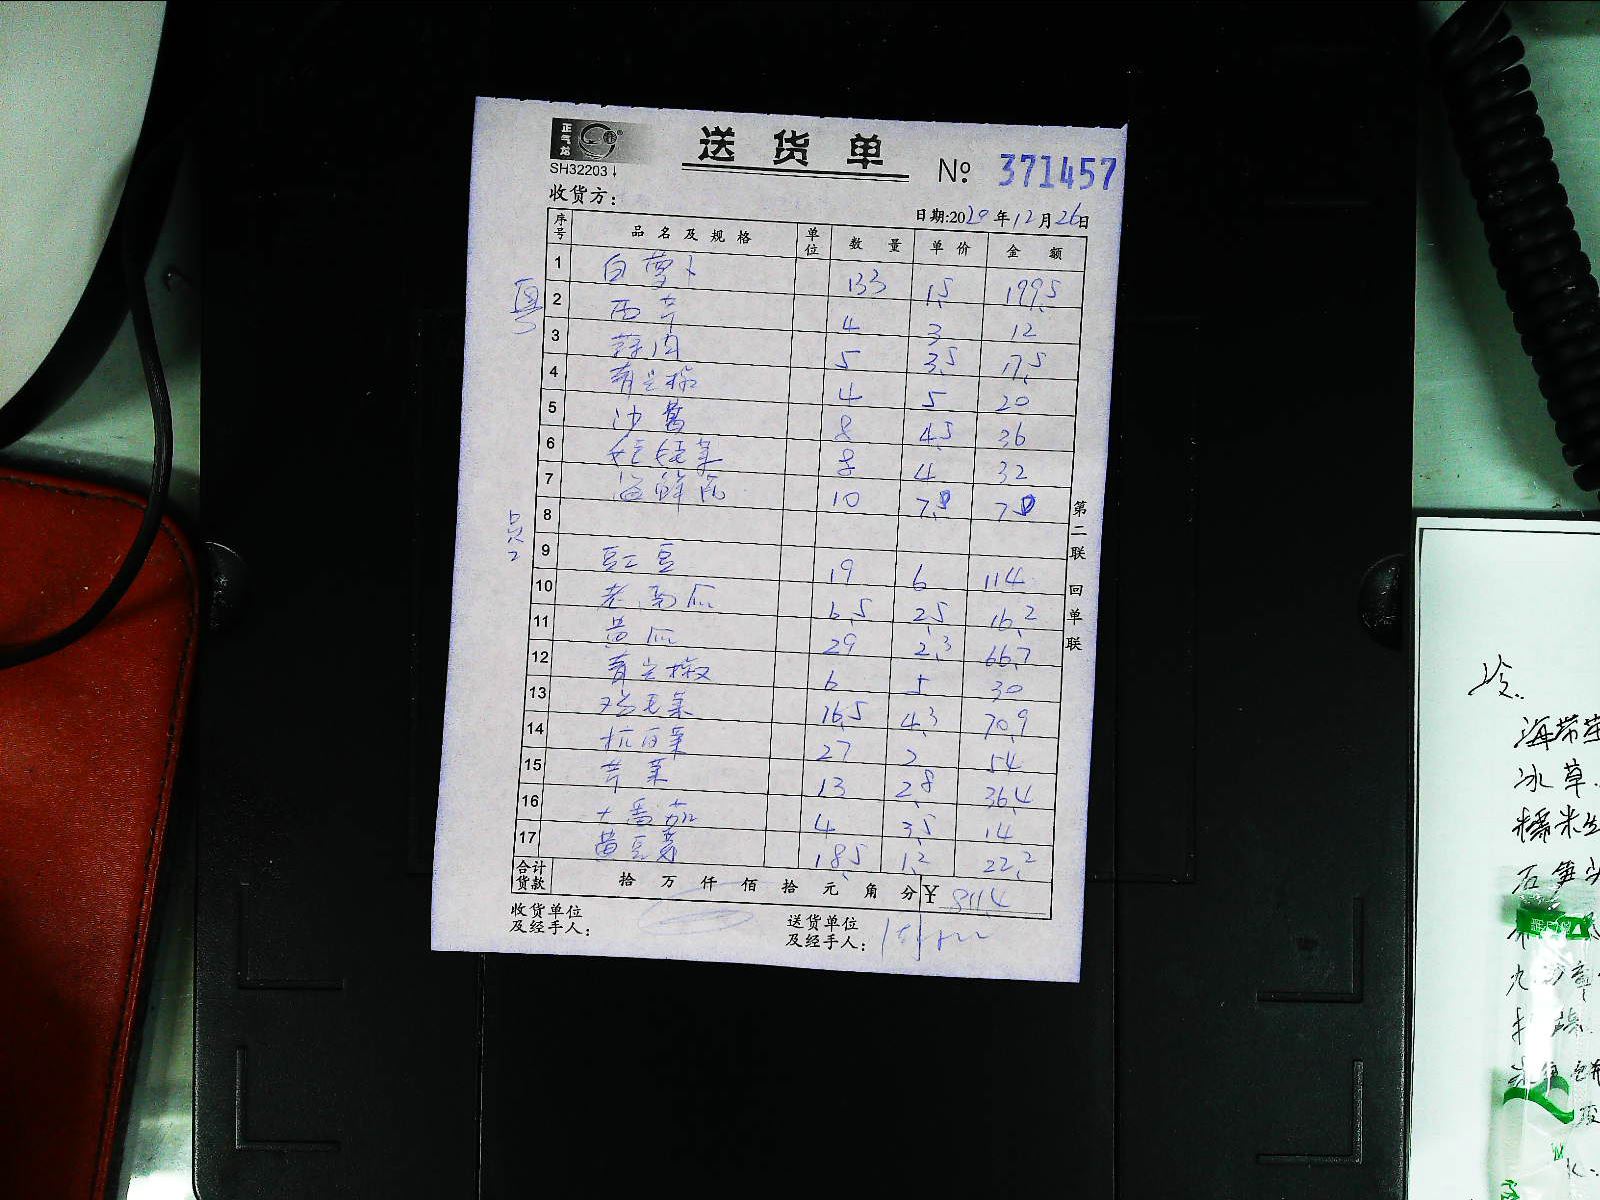 正气龙
送 货 单
№ 371457
SH32203↓
收货方:
日期:2020年12月26日
序号 品名及规格 单位 数量 单价 金额
1 白萝卜 133 1.5 199.5
粤
2 西芹 4 3 12
3 蒜肉 5 3.5 17.5
4 青尖椒 4 5 20
5 沙葛 8 4.5 36
6 娃娃菜 8 4 32
7 海鲜菇 10 7.8 78
8
9 豇豆 19 6 114
10 老南瓜 6.5 2.5 16.2
11 黄瓜 29 2.3 66.7
12 青尖椒 6 5 30
13 鸡毛菜 16.5 4.3 70.9
14 杭白菜 27 2 54
15 芹菜 13 2.8 36.4
16 大番茄 4 3.5 14
17 黄豆芽 18.5 1.2 22.2
合计货款 拾 万 仟 佰 拾 元 角 分 ¥ 811.4
收货单位及经手人:
送货单位及经手人:
第二联 回单联
冷.
海带
冰草.
糯米
石笋